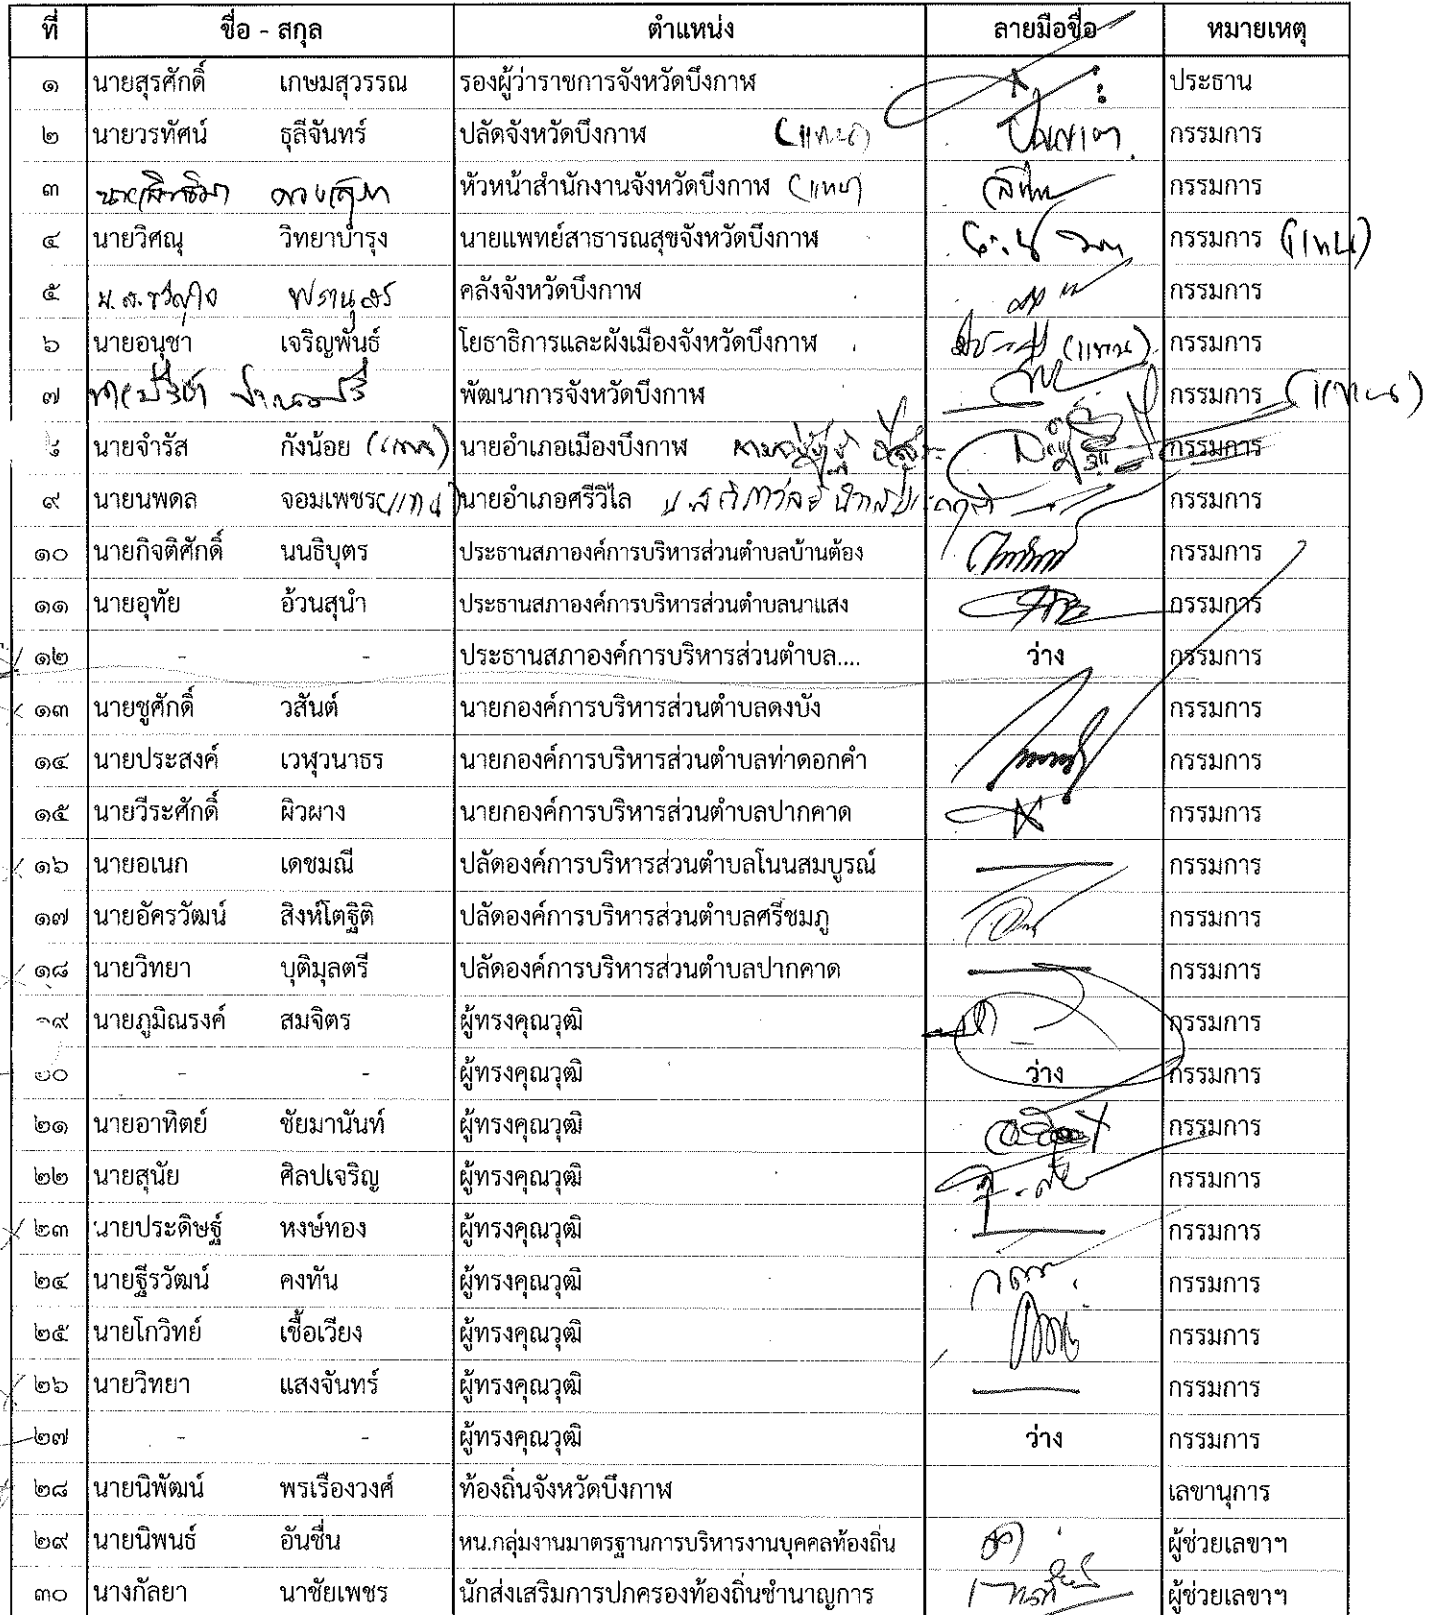 ที่ ชื่อ - สกุล ตำแหน่ง ลายมือชื่อ หมายเหตุ
๑ นายสุรศักดิ์ เกษมสุวรรณ รองผู้ว่าราชการจังหวัดบึงกาฬ ประธาน
๒ นายวรทัศน์ ธุลีจันทร์ ปลัดจังหวัดบึงกาฬ (แทน) กรรมการ
๓ หัวหน้าสำนักงานจังหวัดบึงกาฬ (แทน) กรรมการ
๔ นายวิศณุ วิทยาบำรุง นายแพทย์สาธารณสุขจังหวัดบึงกาฬ กรรมการ (แทน)
๕ คลังจังหวัดบึงกาฬ กรรมการ
๖ นายอนุชา เจริญพันธ์ โยธาธิการและผังเมืองจังหวัดบึงกาฬ (แทน) กรรมการ
๗ พัฒนาการจังหวัดบึงกาฬ กรรมการ (แทน)
๘ นายจำรัส กังน้อย (แทน) นายอำเภอเมืองบึงกาฬ กรรมการ
๙ นายนพดล จอมเพชร (แทน) นายอำเภอศรีวิไล กรรมการ
๑๐ นายกิจติศักดิ์ นนธิบุตร ประธานสภาองค์การบริหารส่วนตำบลบ้านต้อง กรรมการ
๑๑ นายอุทัย อ้วนสุนำ ประธานสภาองค์การบริหารส่วนตำบลนาแสง กรรมการ
๑๒ - - ประธานสภาองค์การบริหารส่วนตำบล.... ว่าง กรรมการ
๑๓ นายชูศักดิ์ วสันต์ นายกองค์การบริหารส่วนตำบลดงบัง กรรมการ
๑๔ นายประสงค์ เวฬุวนาธร นายกองค์การบริหารส่วนตำบลท่าดอกคำ กรรมการ
๑๕ นายวีระศักดิ์ ผิวผาง นายกองค์การบริหารส่วนตำบลปากคาด กรรมการ
๑๖ นายอเนก เดชมณี ปลัดองค์การบริหารส่วนตำบลโนนสมบูรณ์ กรรมการ
๑๗ นายอัครวัฒน์ สิงห์โตฐิติ ปลัดองค์การบริหารส่วนตำบลศรีชมภู กรรมการ
๑๘ นายวิทยา บุติมุลตรี ปลัดองค์การบริหารส่วนตำบลปากคาด กรรมการ
๑๙ นายภูมิณรงค์ สมจิตร ผู้ทรงคุณวุฒิ กรรมการ
๒๐ - - ผู้ทรงคุณวุฒิ ว่าง กรรมการ
๒๑ นายอาทิตย์ ชัยมานันท์ ผู้ทรงคุณวุฒิ กรรมการ
๒๒ นายสุนัย ศิลปเจริญ ผู้ทรงคุณวุฒิ กรรมการ
๒๓ นายประดิษฐ์ หงษ์ทอง ผู้ทรงคุณวุฒิ กรรมการ
๒๔ นายฐีรวัฒน์ คงทัน ผู้ทรงคุณวุฒิ กรรมการ
๒๕ นายโกวิทย์ เชื้อเวียง ผู้ทรงคุณวุฒิ กรรมการ
๒๖ นายวิทยา แสงจันทร์ ผู้ทรงคุณวุฒิ กรรมการ
๒๗ - - ผู้ทรงคุณวุฒิ ว่าง กรรมการ
๒๘ นายนิพัฒน์ พรเรืองวงศ์ ท้องถิ่นจังหวัดบึงกาฬ เลขานุการ
๒๙ นายนิพนธ์ อันชื่น หน.กลุ่มงานมาตรฐานการบริหารงานบุคคลท้องถิ่น ผู้ช่วยเลขาฯ
๓๐ นางกัลยา นาชัยเพชร นักส่งเสริมการปกครองท้องถิ่นชำนาญการ ผู้ช่วยเลขาฯ